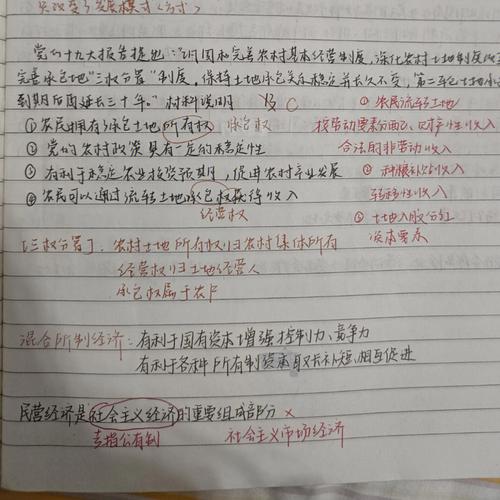 只改变了发展模式(方式)
党的十九大报告提出:"巩固和完善农村基本经营制度,深化农村土地制度改革
完善承包地"三权分置"制度,保持土地承包关系稳定并长久不变,第二轮土地承包
到期后再延长三十年。"材料说明 B C
① 农民流转土地
①农民拥有承包土地所有权 承包权
按劳动要素分配、财产性收入
②党的农村政策具有一定的稳定性
合法的非劳动收入
③有利于稳定农业投资预期,促进农村产业发展
② 种粮补贴收入
④农民可以通过流转土地承包权获得收入
转移性收入
经营权
③ 土地入股分红
资本要素
[三权分置]:农村土地所有权归农村集体所有
经营权归土地经营人
承包权属于农户
混合所有制经济:有利于国有资本增强控制力、竞争力
有利于各种所有制资本取长补短、相互促进
民营经济是社会主义经济的重要组成部分 ×
专指公有制 社会主义市场经济